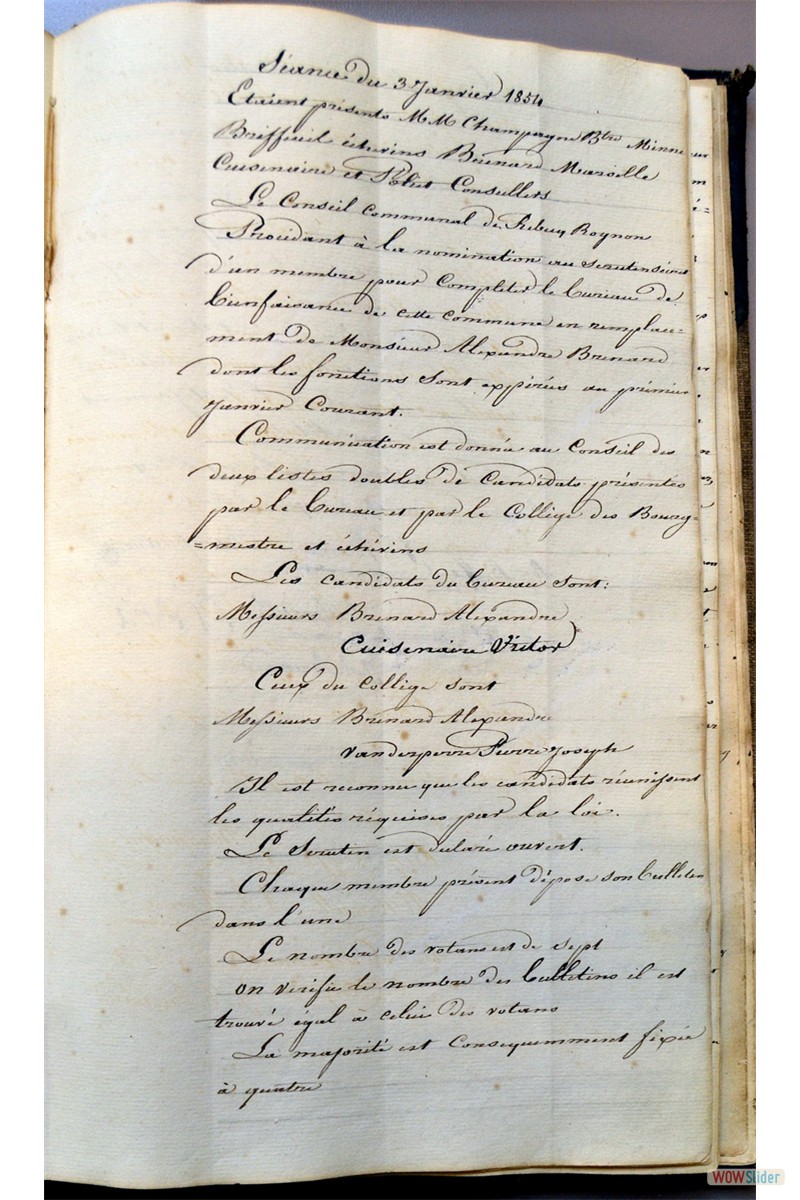 Séance du 3 Janvier 1854
Etaient présents MM Champagne Btre Minne
Briffeuil échevins Brenard Marselle
Cuisenaire et Poliet Consullers
Le Conseil Communal de Rebecq Rognon
Procédant à la nomination au scrutensécret
d'un membre pour completer le bureau de
bienfaisance de cette commune en remplace-
ment de Monsieur Alexandre Brenard
dont les fonctions sont expirées au prémier
Janvier Courant.
Communication est donnée au Conseil des
deux listes doubles de Candidats présentés
par le bureau et par le Collège des Bourg-
=mestre et échevins
Les candidats du bureau sont:
Messieurs Brenard Alexandre
Cuisenaire Victor
Ceux du collège sont
Messieurs Brenard Alexandre
Vanderperre Pierre Joseph
Il est reconnu que les candidats réunissent
les qualités réquises par la loi.
Le Scrutin est déclaré ouvert.
Chaque membre présent dépose son bulletin
dans l'urne
Le nombre des votans est de sept
on vérifie le nombre des bulletins il est
trouvé égal à celui des votans
La majorité est Consequemment fixée
à quatre
WOWSlider